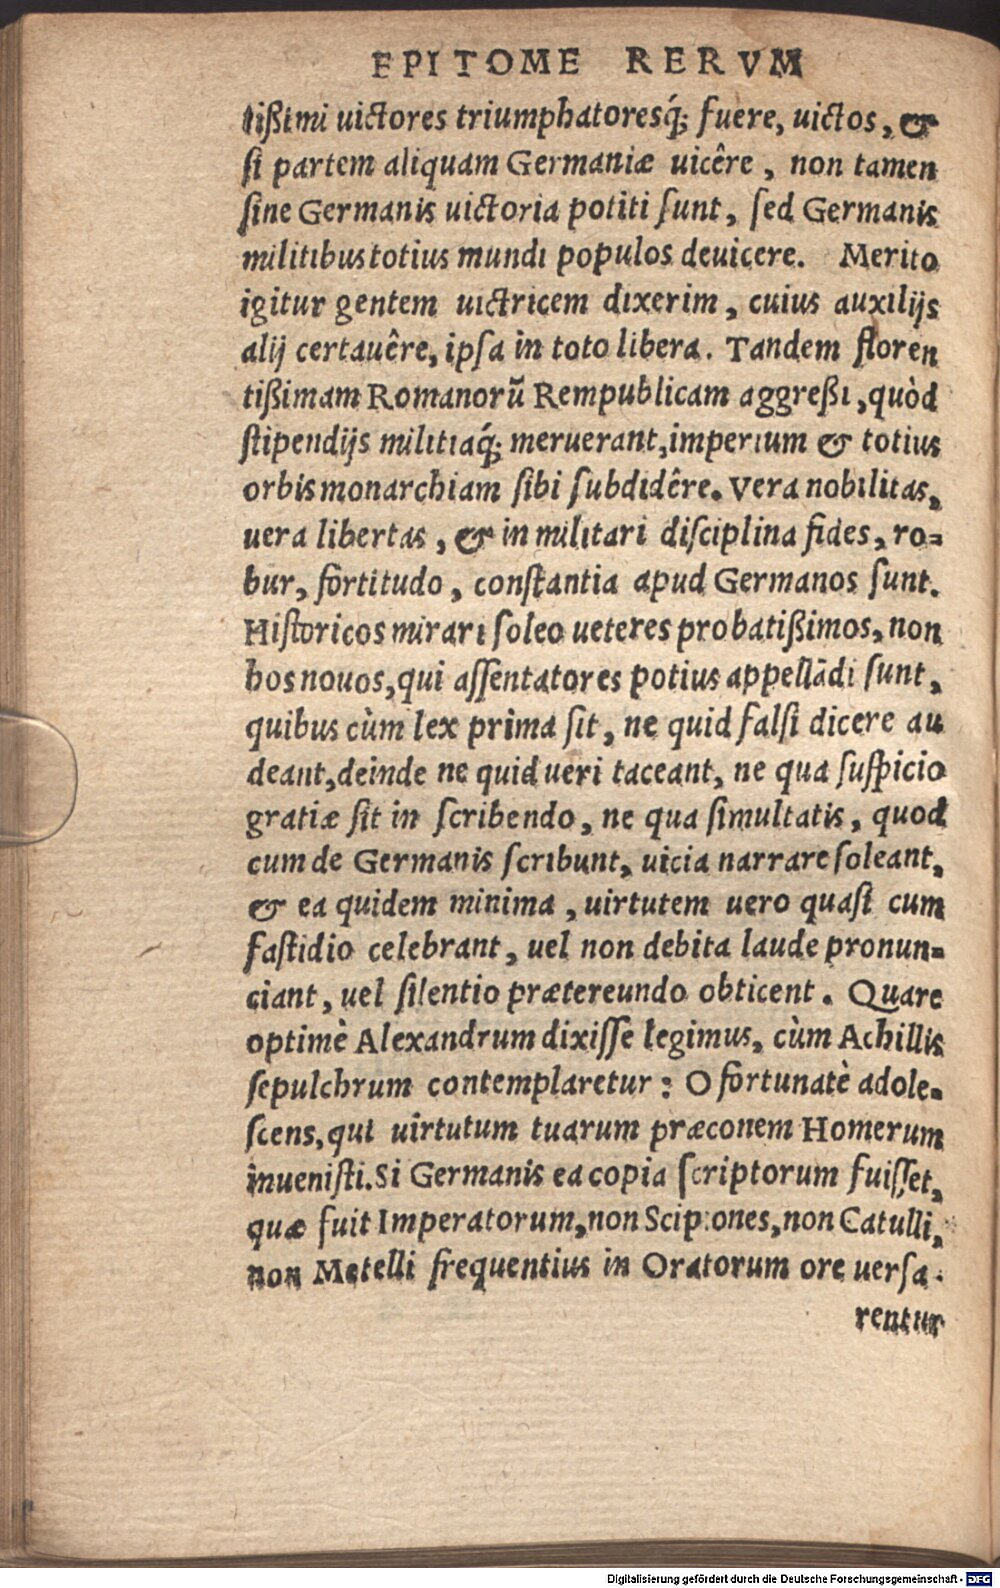 EPITOME RERVM
tißimi uictores triumphatoresq́; fuere, uictos, &
si partem aliquam Germaniæ uicêre, non tamen
sine Germanis uictoria potiti sunt, sed Germanis
militibus totius mundi populos deuicere. Merito
igitur gentem uictricem dixerim, cuius auxilijs
alij certauêre, ipsa in toto libera. Tandem floren
tißimam Romanorũ Rempublicam aggreßi, quòd
stipendijs militiaq́; meruerant, imperium & totius
orbis monarchiam sibi subdidêre. Vera nobilitas,
uera libertas, & in militari disciplina fides, ro=
bur, fortitudo, constantia apud Germanos sunt.
Historicos mirari soleo ueteres probatißimos, non
hos nouos, qui assentatores potius appellãdi sunt,
quibus cùm lex prima sit, ne quid falsi dicere au
deant, deinde ne quid ueri taceant, ne qua suspicio
gratiæ sit in scribendo, ne qua simultatis, quod
cum de Germanis scribunt, uicia narrare soleant,
& ea quidem minima, uirtutem uero quasi cum
fastidio celebrant, uel non debita laude pronun=
ciant, uel silentio prætereundo obticent. Quare
optimè Alexandrum dixisse legimus, cùm Achillis
sepulchrum contemplaretur: O fortunatè adole=
scens, qui uirtutum tuarum præconem Homerum
inuenisti. Si Germanis ea copia scriptorum fuisset,
quæ fuit Imperatorum, non Scipiones, non Catulli,
non Metelli frequentius in Oratorum ore uersa=
rentur
Digitalisierung gefördert durch die Deutsche Forschungsgemeinschaft - DFG